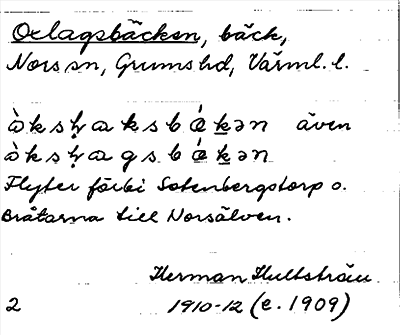 Oxlagsbäcken, bäck,
Nors sn, Grums hd, Värml. l.
även
Flyter förbi Sotenbergstorp o.
Bråtarna till Norsälven.
Herman Hultström
2 1910-12 (e. 1909)